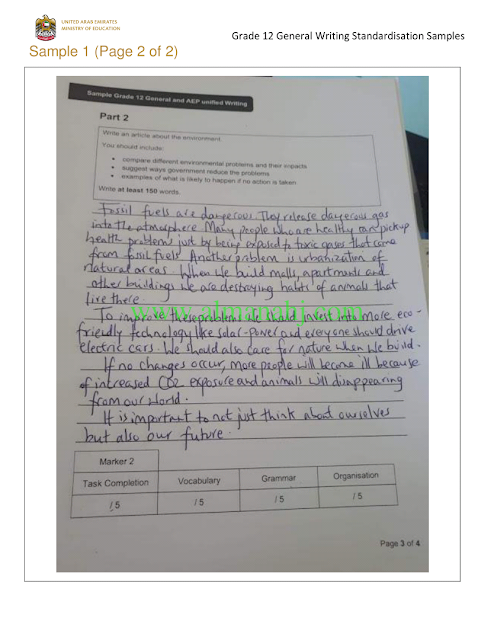 UNITED ARAB EMIRATES
MINISTRY OF EDUCATION
Grade 12 General Writing Standardisation Samples
Sample 1 (Page 2 of 2)
Sample Grade 12 General and AEP unified Writing
Part 2
Write an article about the environment.
You should include:
• compare different environmental problems and their impacts
• suggest ways government reduce the problems
• examples of what is likely to happen if no action is taken
Write at least 150 words.
Fossil fuels are dangerous. They release dangerous gas
into the atmosphere. Many people who are healthy can pickup
health problems just by being exposed to toxic gases that come
from fossil fuels. Another problem is urbanization of
natural areas. When we build malls, apartments and
other buildings we are destroying habits of animals that
live there.
www.almanahj.com
To improve these problems we should invest into more eco-
friendly technology like solar-power and everyone should drive
electric cars. We should also care for nature when we build.
If no changes occur, more people will become ill because
of increased CO2 exposure and animals will disappearing
from our world.
It is important to not just think about ourselves
but also our future.
Marker 2
Task Completion Vocabulary Grammar Organisation
/ 5 / 5 / 5 / 5
Page 3 of 4